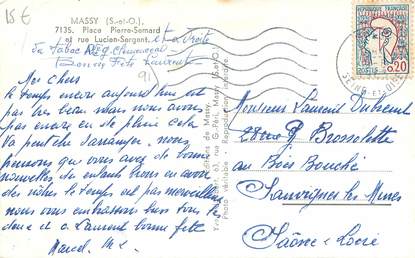 18€
MASSY (S.-et-O.).
7135. Place Pierre-Semard et La Droite
et rue Lucien-Sergent.
du Tabac Rég
Bonne Fête Laurent
91
Mes chers
le temps encore aujourd'hui est
pas très beau nous avons
pas encore eu de pluie cela
va peut être s'arranger. nous
pensons que vous avez de bonnes
nouvelles des enfants nous en avons
des nôtres le temps est pas merveilleux
nous vous embrassons bien tous les
deux et a Laurent bonne fête
Marcel
Éditions de Massy
Photo véritable - Reproduction interdite.
REPUBLIQUE FRANCAISE
POSTES
0,20
SEINE-ET-OISE
Monsieur Laurent Dubreuil
28 rue P. Brossolette
au Bois Bouché
Sanvignes les Mines
Saône et Loire